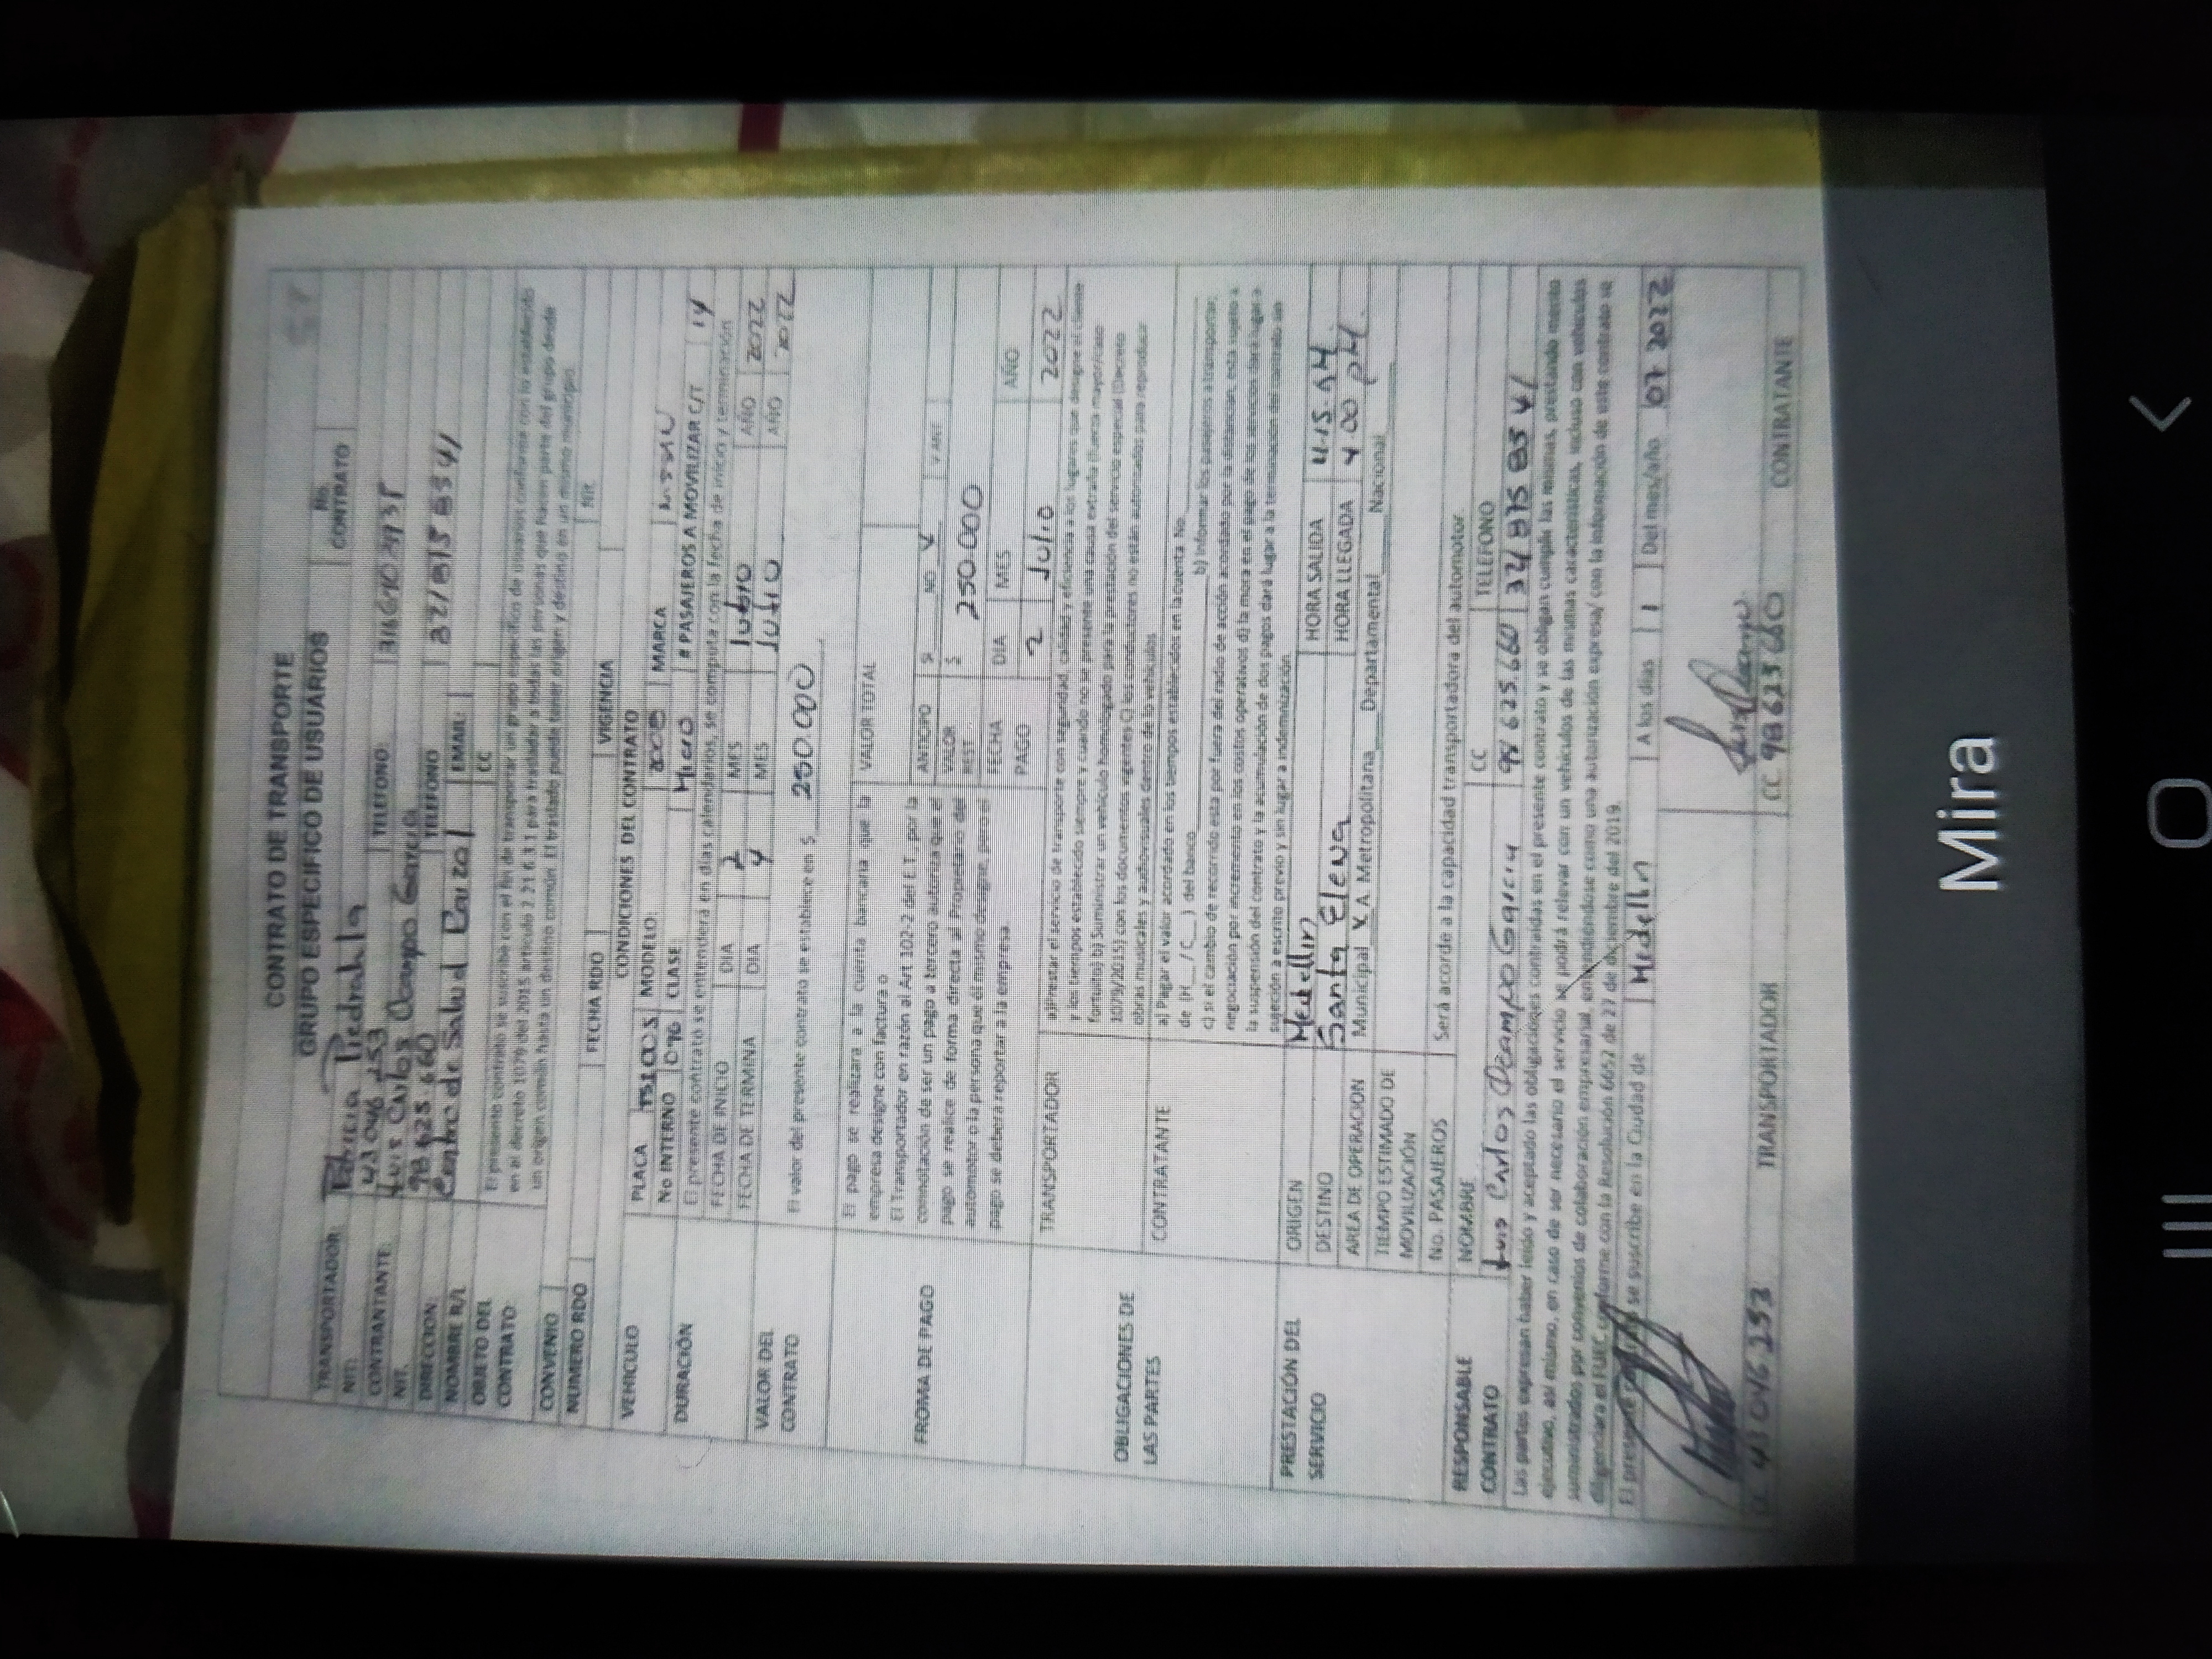 CONTRATO DE TRANSPORTE
GRUPO ESPECIFICO DE USUARIOS
No. CONTRATO
TRANSPORTADOR: Patricia Piedrahita TELEFONO:
NIT: 43 046 253
CONTRANTANTE: Luis Carlos Ocampo Garcia
NIT. 98 625.660 TELEFONO
DIRECCION: Centro de Salud EMAIL:
NOMBRE R/L CC
OBJETO DEL CONTRATO: El presente contrato se suscribe con el fin de transportar un grupo especifico de usuarios conforme con lo establecido
en el decreto 1079 del 2015 articulo 2.2.1.6.3.1 para trasladar a todas las personas que hacen parte del grupo desde
un origen común hasta un destino común. El traslado puede tener origen y destino en un mismo municipio.
CONVENIO Nit.
NUMERO RDO FECHA RDO VIGENCIA
CONDICIONES DEL CONTRATO
VEHICULO PLACA MODELO: 2008 MARCA
No INTERNO 096 CLASE Micro # PASAJEROS A MOVILIZAR C/T 14
DURACIÓN El presente contrato se entenderá en días calendarios, se computa con la fecha de inicio y terminación
FECHA DE INICIO DIA 2 MES AÑO 2022
FECHA DE TERMINA DIA 4 MES Julio AÑO 2022
VALOR DEL CONTRATO El valor del presente contrato se establece en $ 250.000
FROMA DE PAGO El pago se realizara a la cuenta bancaria que la
empresa designe con factura o
El Transportador en razón al Art 102-2 del E.T., por la
connotación de ser un pago a tercero autoriza que el
pago se realice de forma directa al Propietario del
automotor o la persona que él mismo designe, pero el
pago se deberá reportar a la empresa.
VALOR TOTAL
ANTICIPO SI NO X V ANT
VALOR REST. $ 250.000
FECHA PAGO DIA MES AÑO
2 Julio 2022
OBLIGACIONES DE LAS PARTES
TRANSPORTADOR a)Prestar el servicio de transporte con seguridad, calidad y eficiencia a los lugares que designe el cliente
y los tiempos establecido siempre y cuando no se presente una causa extraña (fuerza mayor/caso
fortuito) b) Suministrar un vehículo homologado para la prestación del servicio especial (Decreto
1079/2015) con los documentos vigentes C) los conductores no están autorizados para reproducir
obras musicales y audiovisuales dentro de lo vehículos
CONTRATANTE a) Pagar el valor acordado en los tiempos establecidos en la cuenta No.
de (H__/ C__) del banco b) Informar los pasajeros a transportar,
c) si el cambio de recorrido esta por fuera del radio de acción acordado por la distancia, esta sujeto a
negociación por incremento en los costos operativos d) la mora en el pago de los servicios dará lugar a
la suspensión del contrato y la acumulación de dos pagos dará lugar a la terminación del contrato sin
sujeción a escrito previo y sin lugar a indemnización.
PRESTACIÓN DEL SERVICIO
ORIGEN Medellin HORA SALIDA
DESTINO Santa Elena HORA LLEGADA 4 00 PM.
AREA DE OPERACION Municipal X A. Metropolitana Departamental Nacional
TIEMPO ESTIMADO DE MOVILIZACIÓN
No. PASAJEROS Será acorde a la capacidad transportadora del automotor.
RESPONSABLE CONTRATO NOMBRE CC TELEFONO
Luis Carlos Ocampo Garcia 98 625.660
Las partes expresan haber leido y aceptado las obligaciones contraidas en el presente contrato y se obligan cumplir las mismas, prestando merito
ejecutivo, así mismo, en caso de ser necesario el servicio se podrá relevar con un vehículos de las mismas características, incluso con vehículos
suministrados por convenios de colaboración empresarial, entendiéndose como una autorización expresa/ con la información de este contrato se
diligenciara el FUEC, conforme con la Resolución 6652 de 27 de diciembre del 2019.
El presente se suscribe en la Ciudad de Medellin A los días 1 Del mes/año 07 2022
43 046 253 CC 98 625 660
TRANSPORTADOR CONTRATANTE
Mira